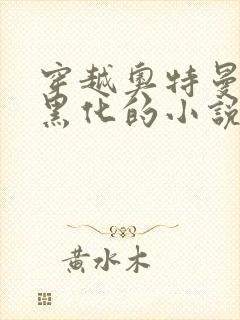 穿越奥特曼
黑化的小说
黄水木